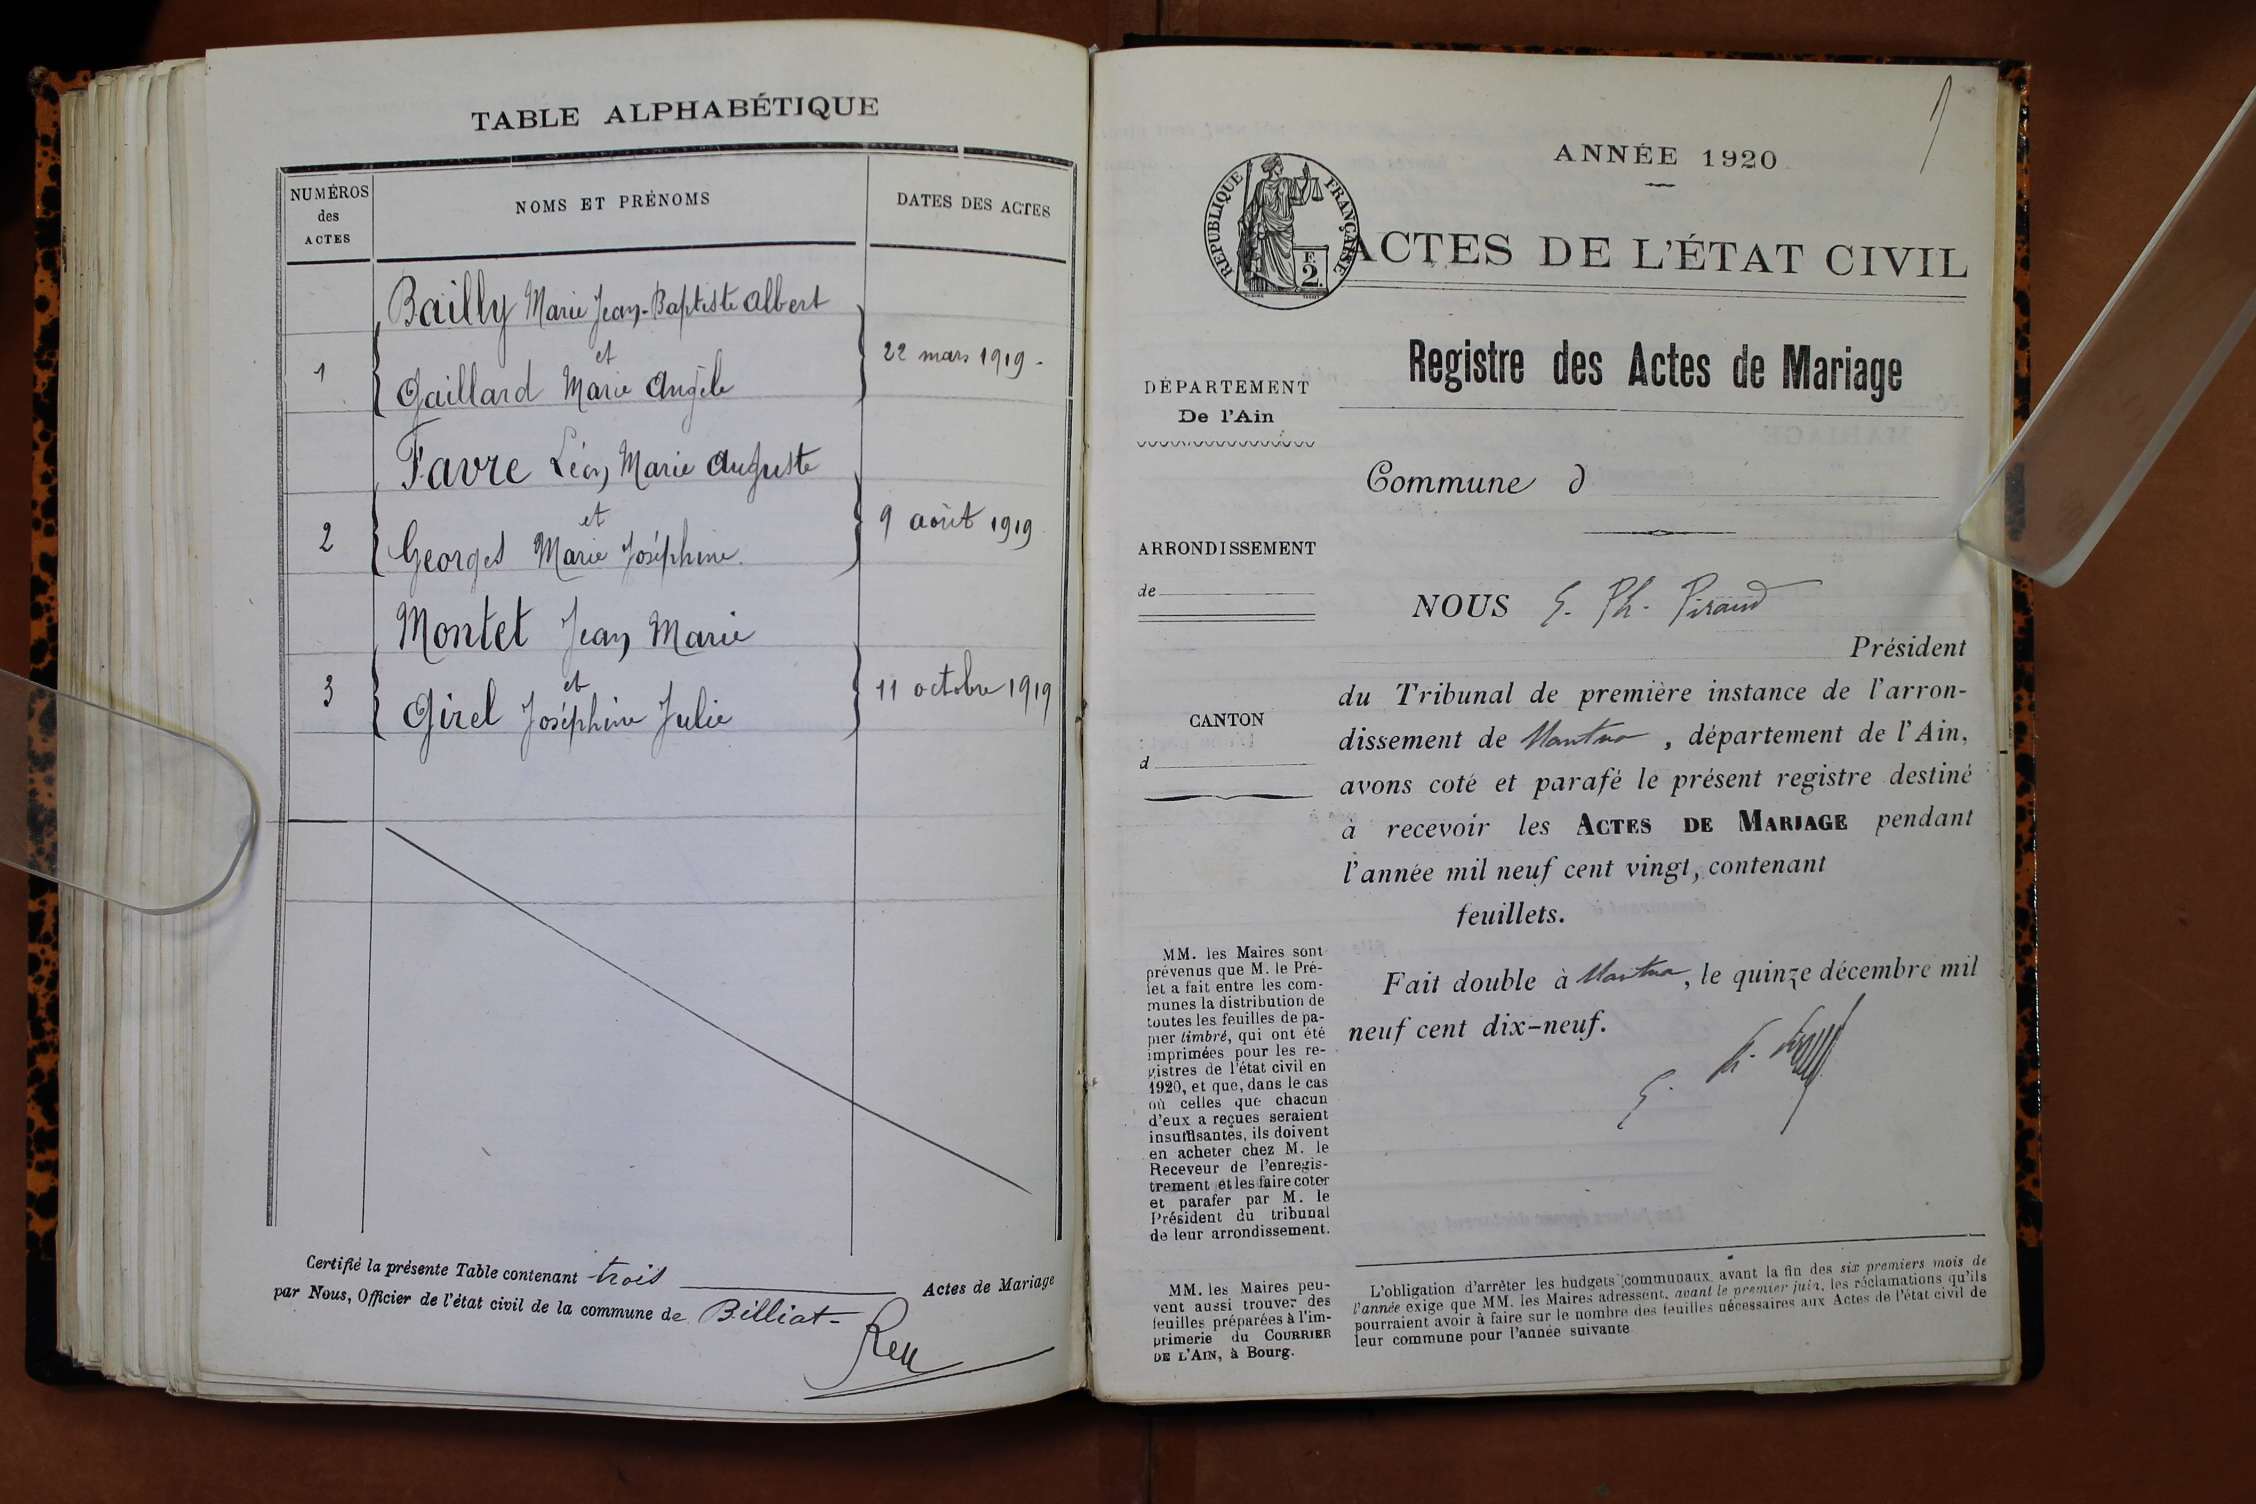 TABLE ALPHABÉTIQUE
NUMÉROS
des
ACTES
NOMS ET PRÉNOMS
DATES DES ACTES
Bailly Marie Jean-Baptiste Albert
et
1
22 mars 1919 -
Gaillard Marie Angèle
Favre Léon Marie Auguste
et
2
9 août 1919
Georges Marie Joséphine.
Montet Jean Marie
et
3
11 octobre 1919
Girel Joséphine Julie
Certifié la présente Table contenant trois Actes de Mariage
par Nous, Officier de l'état civil de la commune de Billiat-
1
ANNÉE 1920
RÉPUBLIQUE FRANÇAISE
F.
2.
ACTES DE L'ÉTAT CIVIL
Registre des Actes de Mariage
DÉPARTEMENT
De l'Ain
Commune d
ARRONDISSEMENT
de
NOUS G. Ph. Piraud
Président
du Tribunal de première instance de l'arron-
dissement de Nantua, département de l'Ain,
avons coté et parafé le présent registre destiné
à recevoir les ACTES DE MARIAGE pendant
l'année mil neuf cent vingt, contenant
feuillets.
CANTON
d
Fait double à Nantua, le quinze décembre mil
neuf cent dix-neuf.
MM. les Maires sont
prévenus que M. le Pré-
fet a fait entre les com-
munes la distribution de
toutes les feuilles de pa-
pier timbré, qui ont été
imprimées pour les re-
gistres de l'état civil en
1920, et que, dans le cas
où celles que chacun
d'eux a reçues seraient
insuffisantes, ils doivent
en acheter chez M. le
Receveur de l'enregis-
trement et les faire coter
et parafer par M. le
Président du tribunal
de leur arrondissement.
MM. les Maires peu-
vent aussi trouver des
feuilles préparées à l'im-
primerie du COURRIER
DE L'AIN, à Bourg.
L'obligation d'arrêter les budgets communaux avant la fin des six premiers mois de
l'année exige que MM. les Maires adressent, avant le premier juin, les réclamations qu'ils
pourraient avoir à faire sur le nombre des feuilles nécessaires aux Actes de l'état civil de
leur commune pour l'année suivante